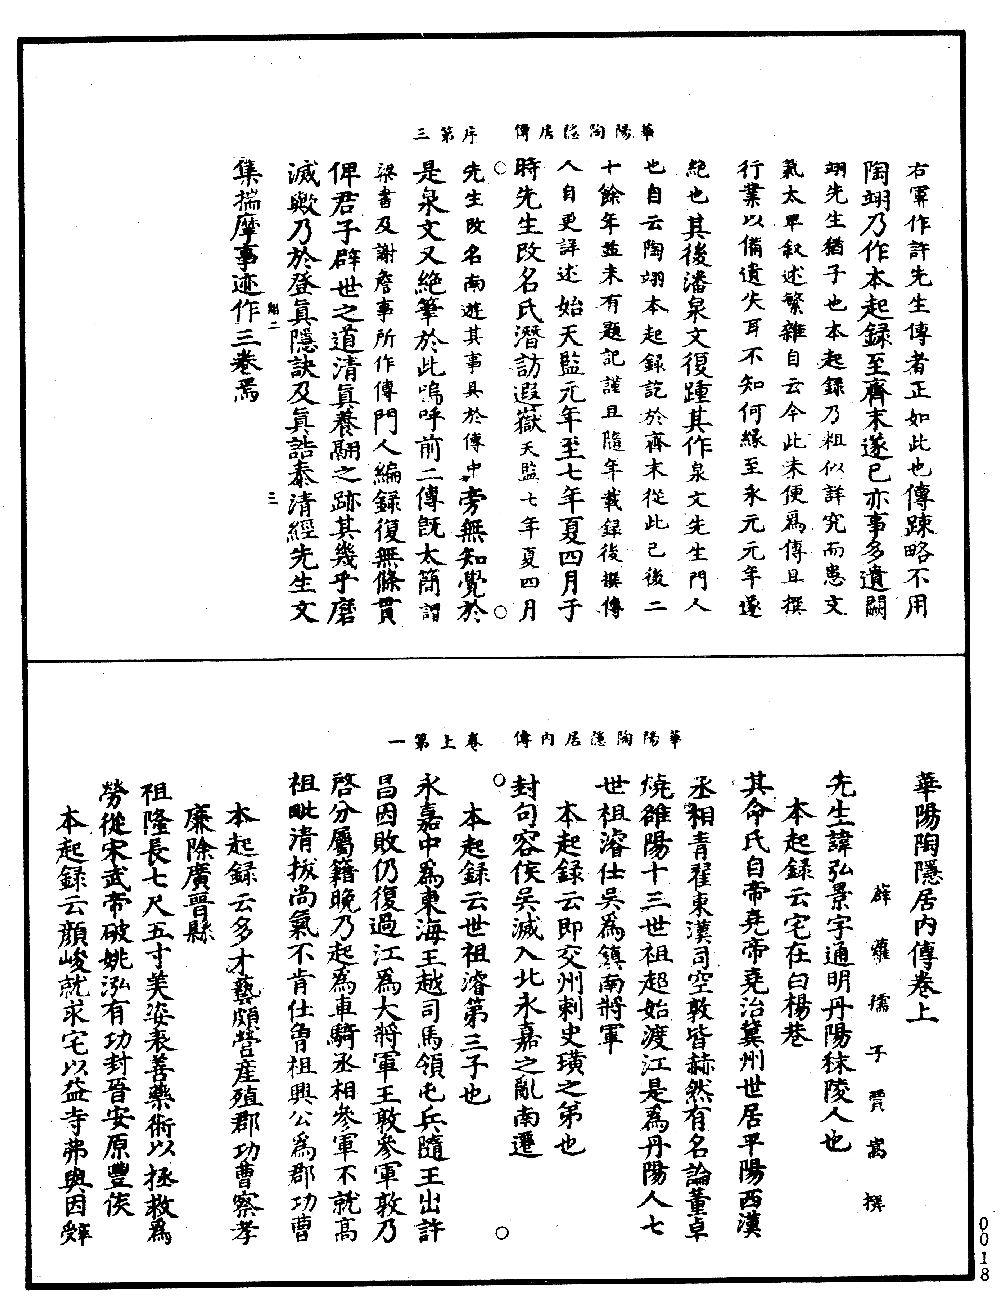 華陽陶隱居傳　序第三
右軍作許先生傳者正如此也傳踈略不用
陶翊乃作本起録至齊末遂已亦事多遺闕
翊先生猶子也本起録乃粗似詳究而患文
氣太卑叙述繁雜自云今此未便爲傳且撰
行業以備遺失耳不知何緣至永元元年遂
絶也其後潘泉文復踵其作泉文先生門人
也自云陶翊本起録訖於齊末從此已後二
十餘年並未有題記謹且隨年載録後撰傳
人自更詳述始天監元年至七年夏四月于
時先生改名氏潛訪遐嶽天監七年夏四月
先生改名南遊其事具於傳中旁無知覺於
是泉文又絶筆於此嗚呼前二傳旣太簡謂
梁書及謝詹事所作傳門人編録復無條貫
俾君子辟世之道清眞養翮之跡其幾乎磨
滅歟乃於登眞隱訣及眞誥泰清經先生文
集揣摩事迹作三卷焉
三
華陽陶隱居内傳　卷上第一
華陽陶隱居内傳卷上
薜蘿孺子賈嵩撰
先生諱弘景字通明丹陽秣陵人也
本起録云宅在白楊巷
其命氏自帝堯帝堯治冀州世居平陽西漢
丞相青翟東漢司空敦皆赫然有名論董卓
燒雒陽十三世祖超始渡江是爲丹陽人七
世祖濬仕吳爲鎮南將軍
本起録云即交州刺史璜之弟也
封句容侯吳滅入北永嘉之亂南遷
本起録云世祖濬第三子也
永嘉中爲東海王越司馬領屯兵隨王出許
昌因敗仍復過江爲大將軍王敦參軍敦乃
啓分屬籍晚乃起爲車騎丞相參軍不就高
祖毗清拔尚氣不肯仕曾祖興公爲郡功曹
本起録云多才藝頗營産殖郡功曹察孝
廉除廣晉縣
祖隆長七尺五寸美姿表善藥術以拯救爲
勞從宋武帝破姚泓有功封晉安原豐侯
本起録云顔峻就求宅以益寺弗與因辤
0018